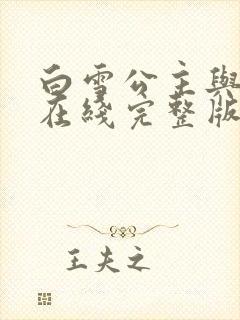 白雪公主與
在綫完整版
王夫之